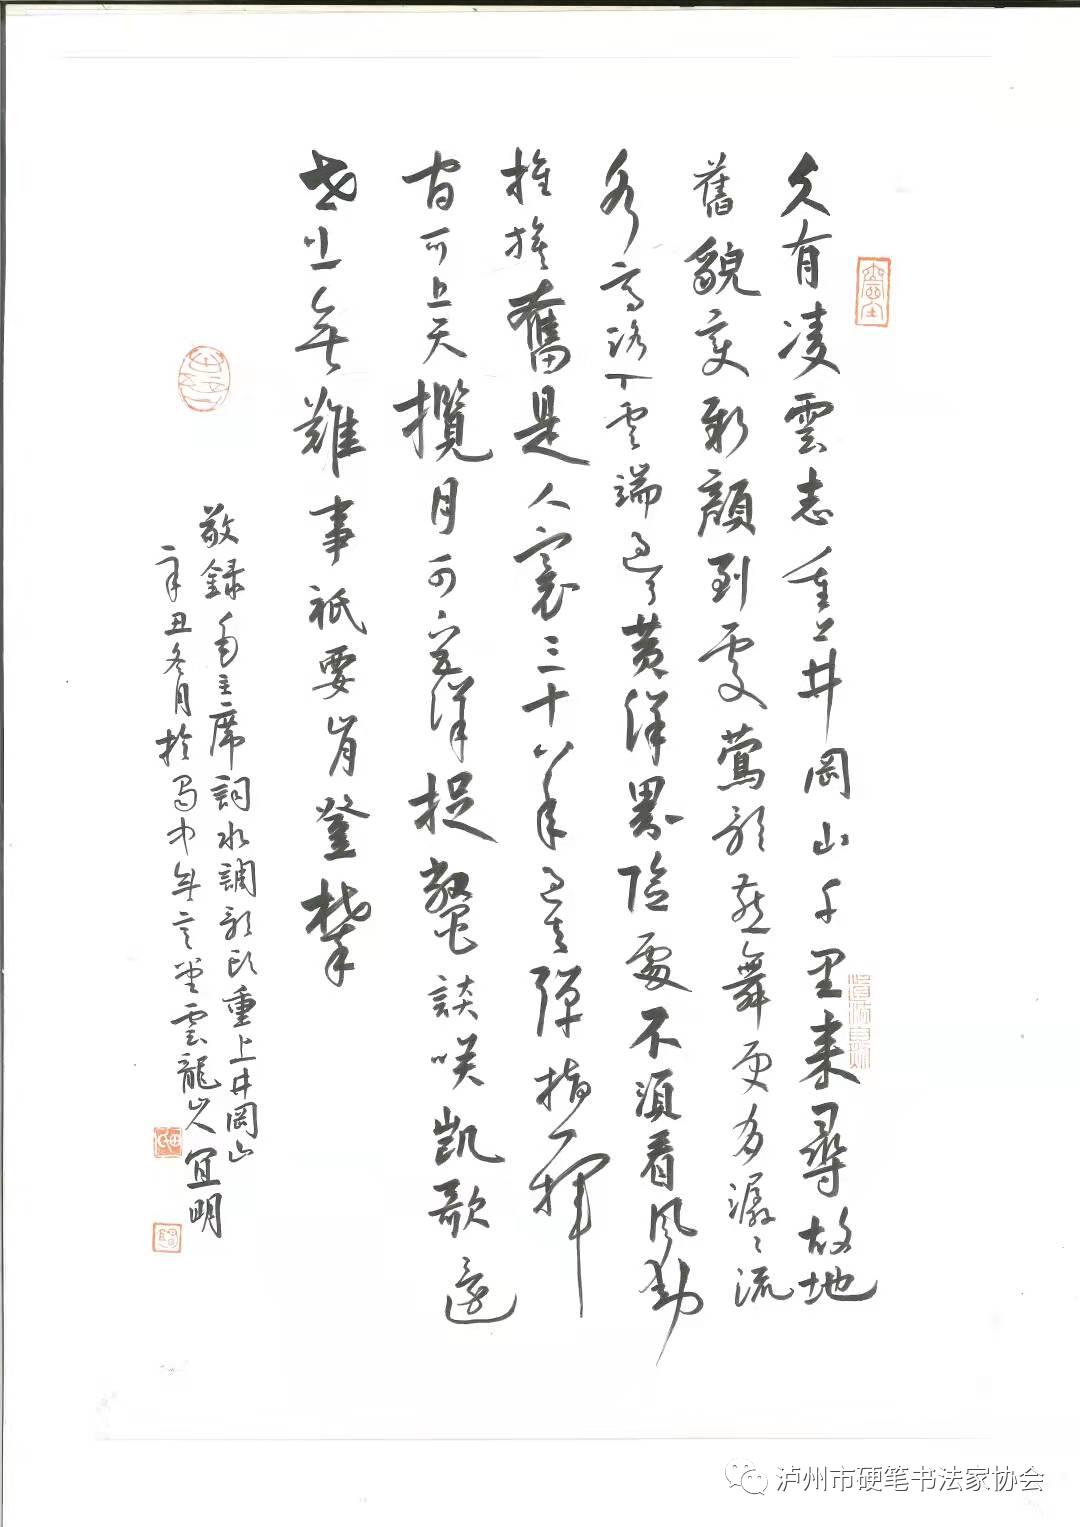 久有凌雲志重上井岡山千里来尋故地
舊貌变新顏到處莺歌燕舞更多潺〻流
水高路入雲端过了黄洋界險處不須看風動
旌旗奮是人寰三十八年过去彈指一揮
间可上天攬月可下五洋捉鱉談咲凱歌還
世上無難事祇要肯登攀
敬録毛主席詞水調歌頭重上井岡山
辛丑冬月於蜀中無言堂雲龍山人宜明
泸州市硬笔书法家协会